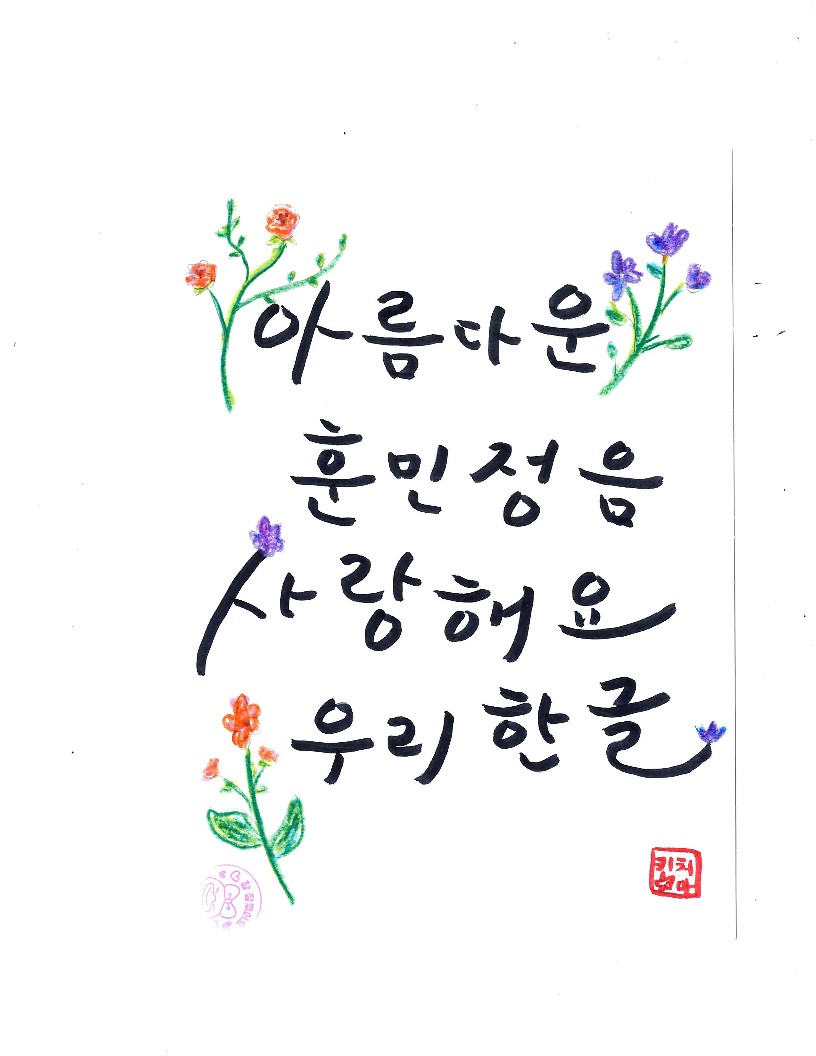 아름다운
훈민정음
사랑해요
우리한글